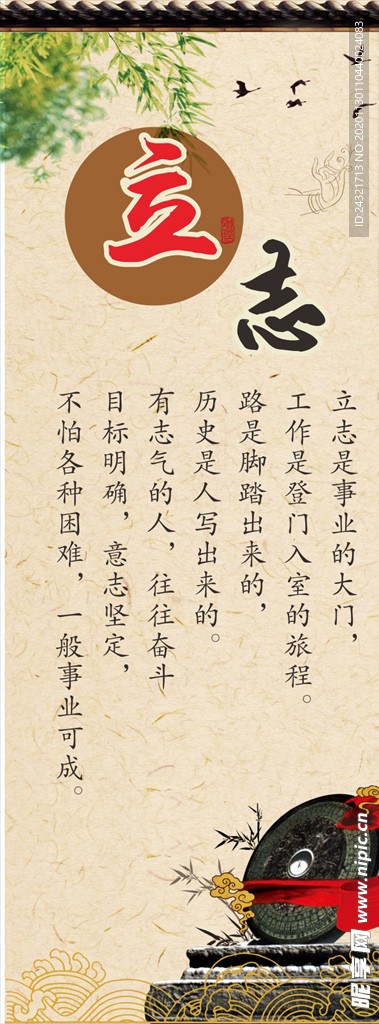 立志
立志是事业的大门，
工作是登门入室的旅程。
路是脚踏出来的，
历史是人写出来的。
有志气的人，往往奋斗
目标明确，意志坚定，
不怕各种困难，一般事业可成。
ID:24321713 NO:20201130110440024083
昵享网 www.nipic.cn